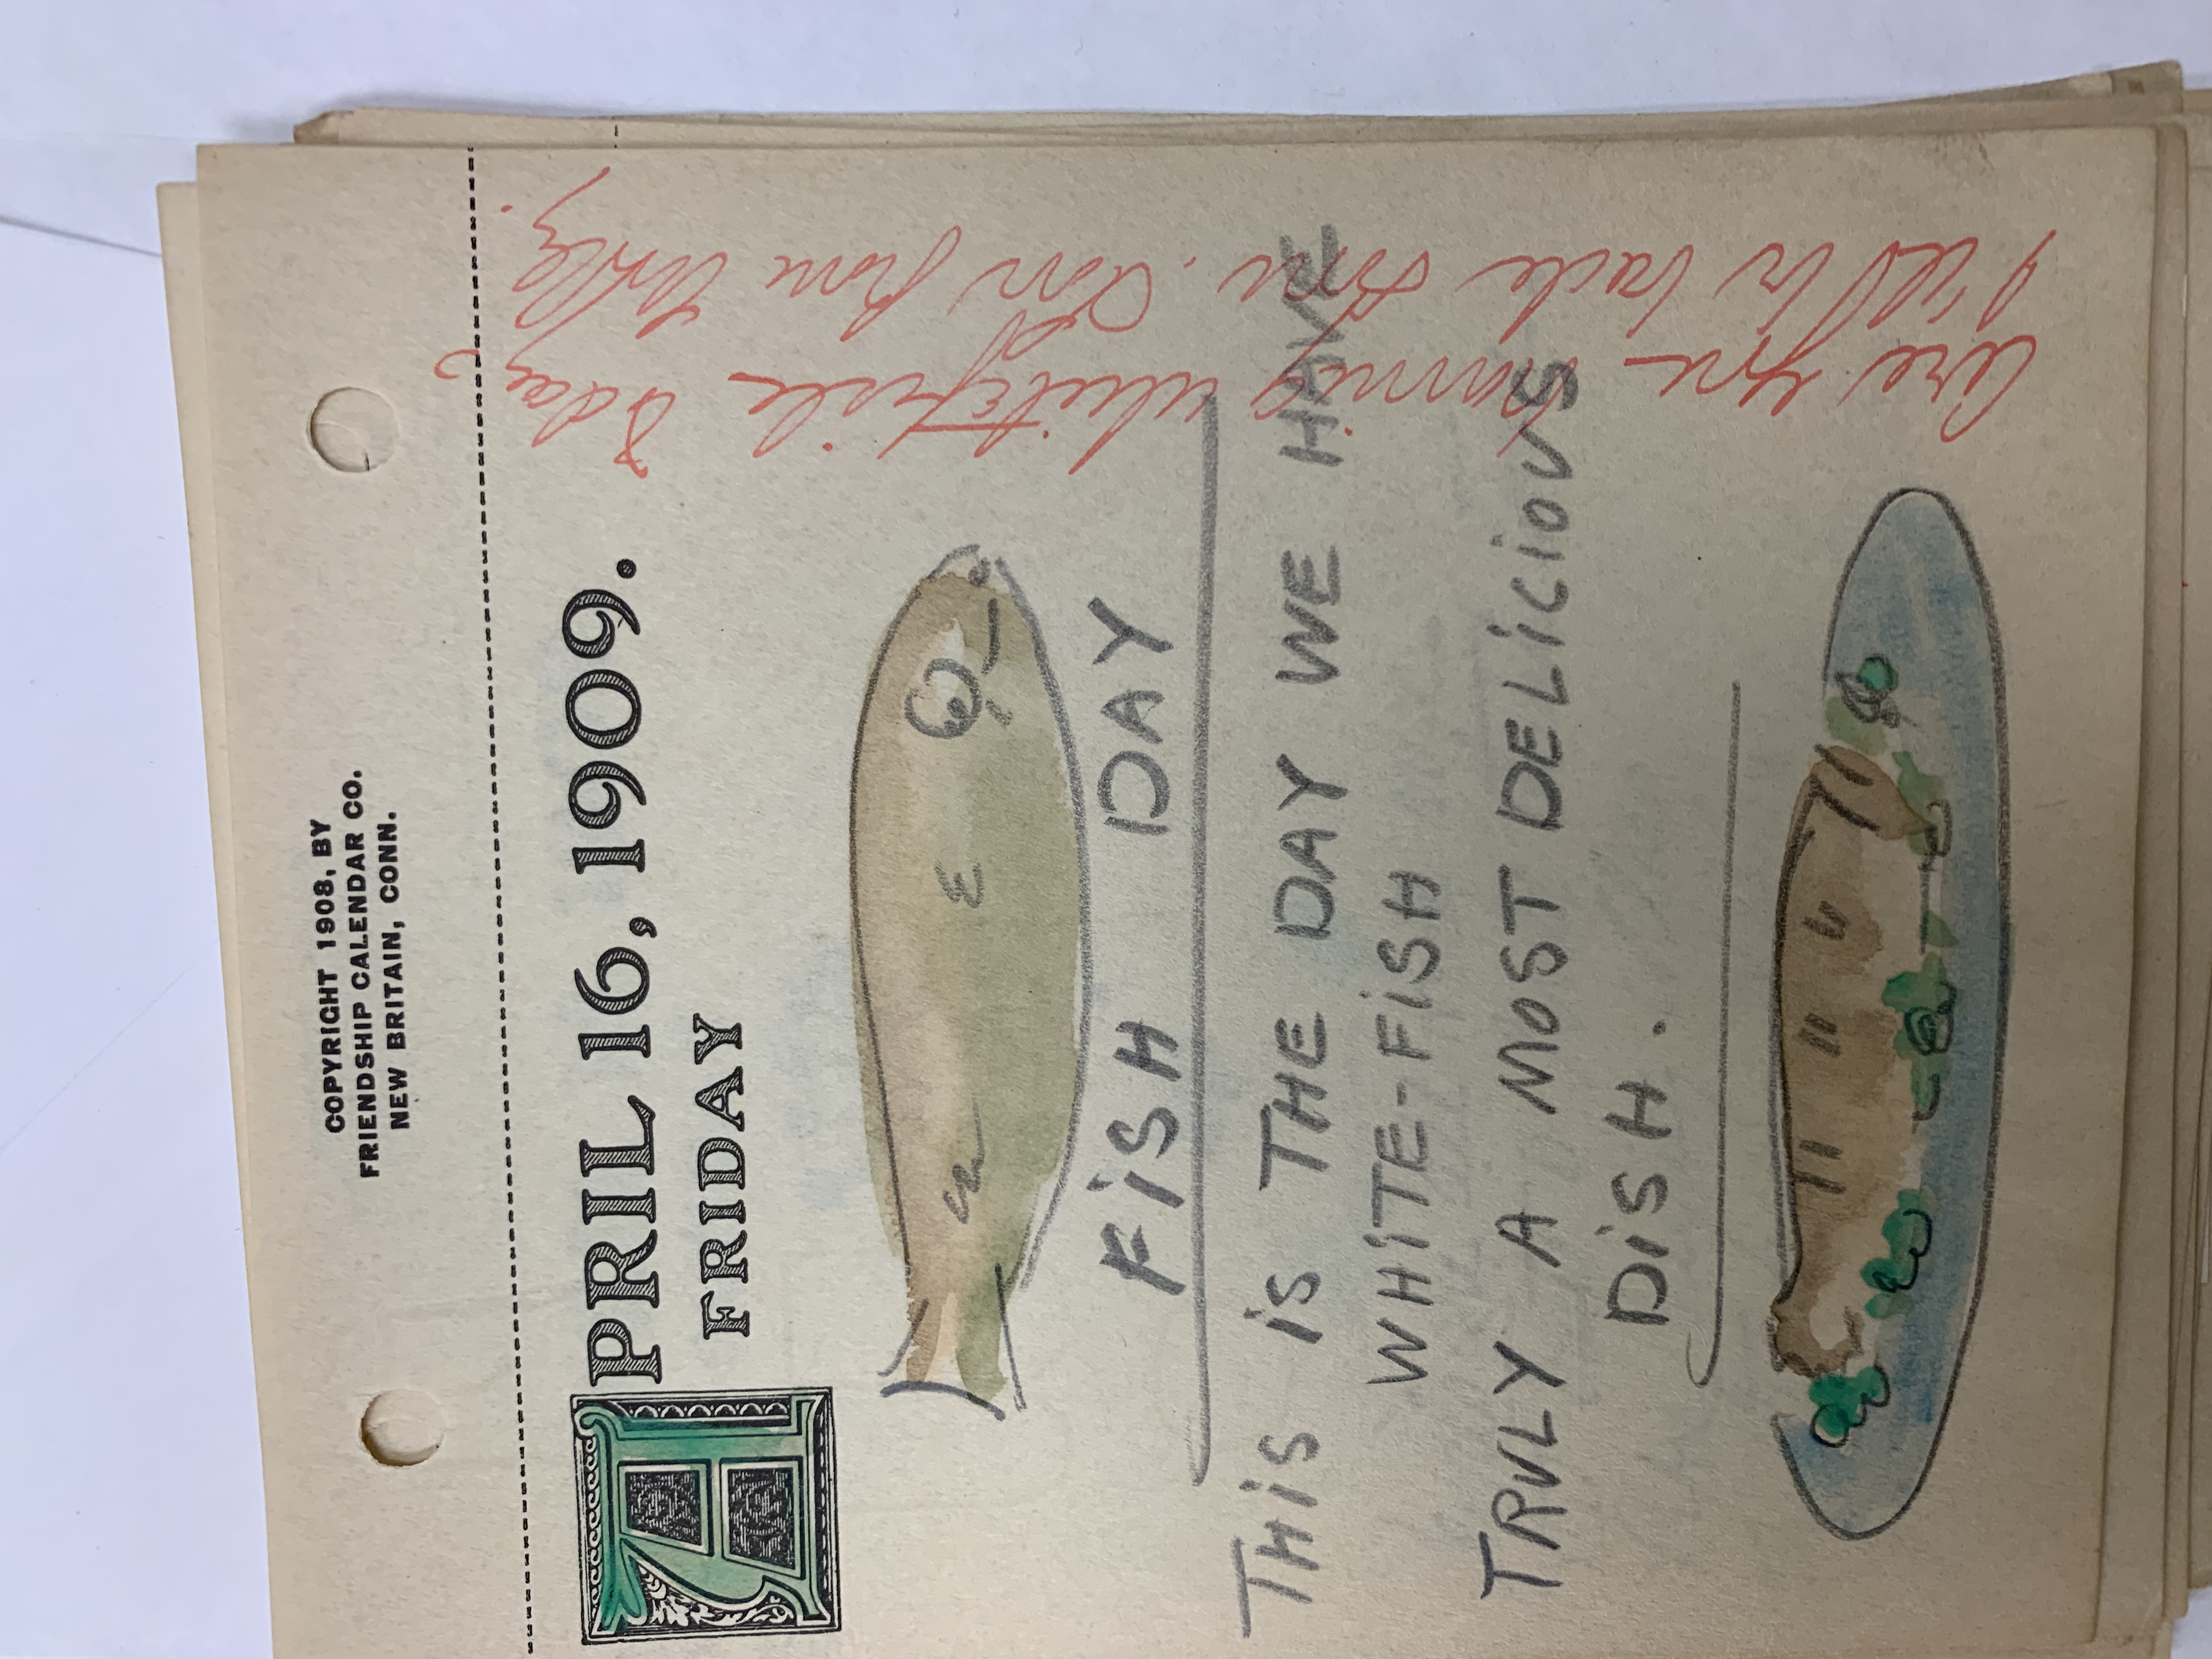 COPYRIGHT 1908, BY
FRIENDSHIP CALENDAR CO.
NEW BRITAIN, CONN.
APRIL 16, 1909.
FRIDAY
FiSH DAY
THiS iS THE DAY WE HAVE
WHiTE-FiSH
TRULY A MOST DELiCiOUS
DiSH.
Are you having whitefish today
I'll be back